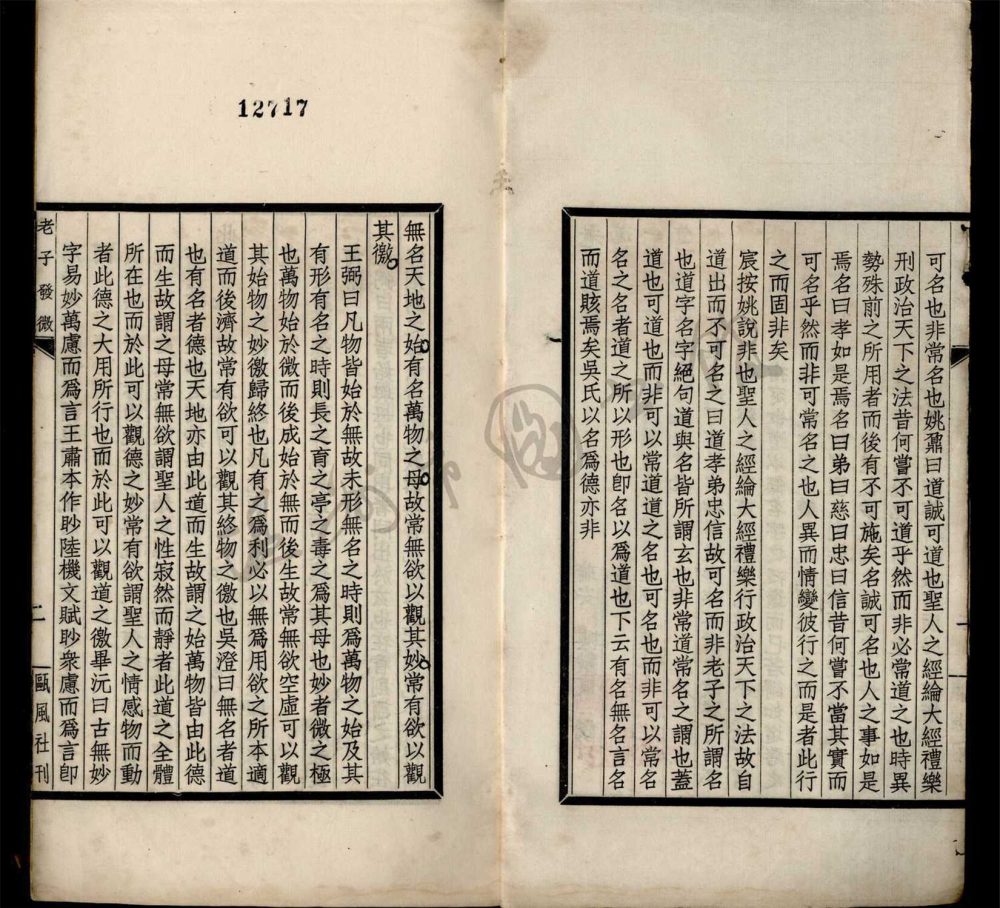 可名也非常名也姚鼐曰道誠可道也聖人之經綸大經禮樂
刑政治天下之法昔何嘗不可道乎然而非必常道之也時異
勢殊前之所用者而後有不可施矣名誠可名也人之事如是
焉名曰孝如是焉名曰弟曰慈曰忠曰信昔何嘗不當其實而
可名乎然而非可常名之也人異而情變彼行之而是者此行
之而固非矣
宸按姚說非也聖人之經綸大經禮樂行政治天下之法故自
道出而不可名之曰道孝弟忠信故可名而非老子之所謂名
也道字名字絕句道與名皆所謂玄也非常道常名之謂也蓋
道也可道也而非可以常道道之名也可名也而非可以常名
名之名者道之所以形也卽名以爲道也下云有名無名言名
而道賅焉矣吳氏以名爲德亦非
12717
無名天地之始有名萬物之母故常無欲以觀其妙常有欲以觀
其徼
王弼曰凡物皆始於無故未形無名之時則爲萬物之始及其
有形有名之時則長之育之亭之毒之爲其母也妙者微之極
也萬物始於微而後成始於無而後生故常無欲空虛可以觀
其始物之妙徼歸終也凡有之爲利必以無爲用欲之所本適
道而後濟故常有欲可以觀其終物之徼也吳澄曰無名者道
也有名者德也天地亦由此道而生故謂之始萬物皆由此德
而生故謂之母常無欲謂聖人之性寂然而靜者此道之全體
所在也而於此可以觀德之妙常有欲謂聖人之情感物而動
者此德之大用所行也而於此可以觀道之徼畢沅曰古無妙
字易妙萬慮而爲言王肅本作眇陸機文賦眇衆慮而爲言卽
老子發微
二
甌風社刊